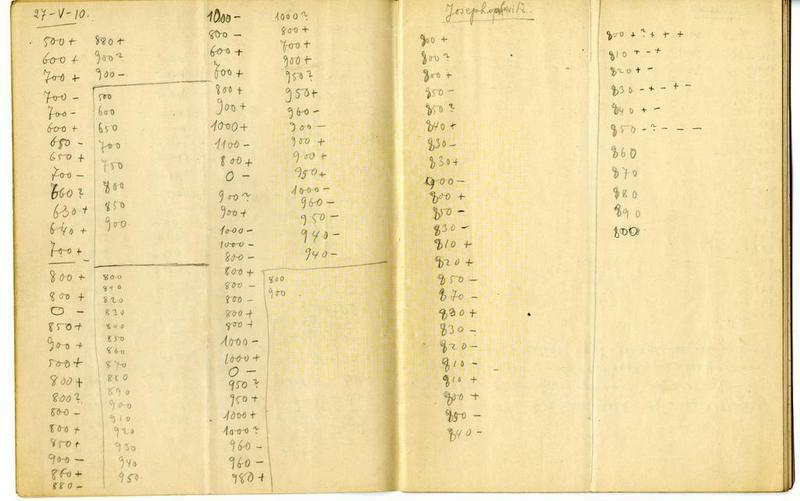 27-V-10.
500 +
600 +
700 +
700 -
700 -
600 +
650 -
650 +
700 -
660 ?
630 +
640 +
700 +
800 +
800 +
0 -
850 +
900 +
500 +
800 +
800 ?
800 -
800 +
850 +
900 -
860 +
880 -
880 +
900 ?
900 -
500
600
650
700
750
800
850
900
800
810
820
830
840
850
860
870
880
890
900
910
920
930
940
950
1000 -
800 -
600 +
700 +
800 +
900 +
1000 +
1100 -
800 +
0 -
900 ?
900 +
1000 -
1000 -
800 -
800 +
800 -
800 -
800 +
800 +
1000 -
1000 +
0 -
950 ?
950 +
1000 +
1000 ?
960 -
960 -
980 +
1000 ?
800 +
700 +
900 +
950 ?
950 +
960 -
900 -
900 +
900 +
950 +
1000 -
960 -
950 -
940 -
940 -
800
900
800 +
800 ?
800 +
850 -
850 ?
840 +
830 -
830 +
900 -
800 +
850 -
830 -
810 +
820 +
850 -
870 -
830 +
830 -
820 -
810 -
810 +
800 +
850 -
840 -
800 + ? + + +
810 + - +
820 + -
830 - + - + -
840 + -
850 - ? - - -
860
870
880
890
800